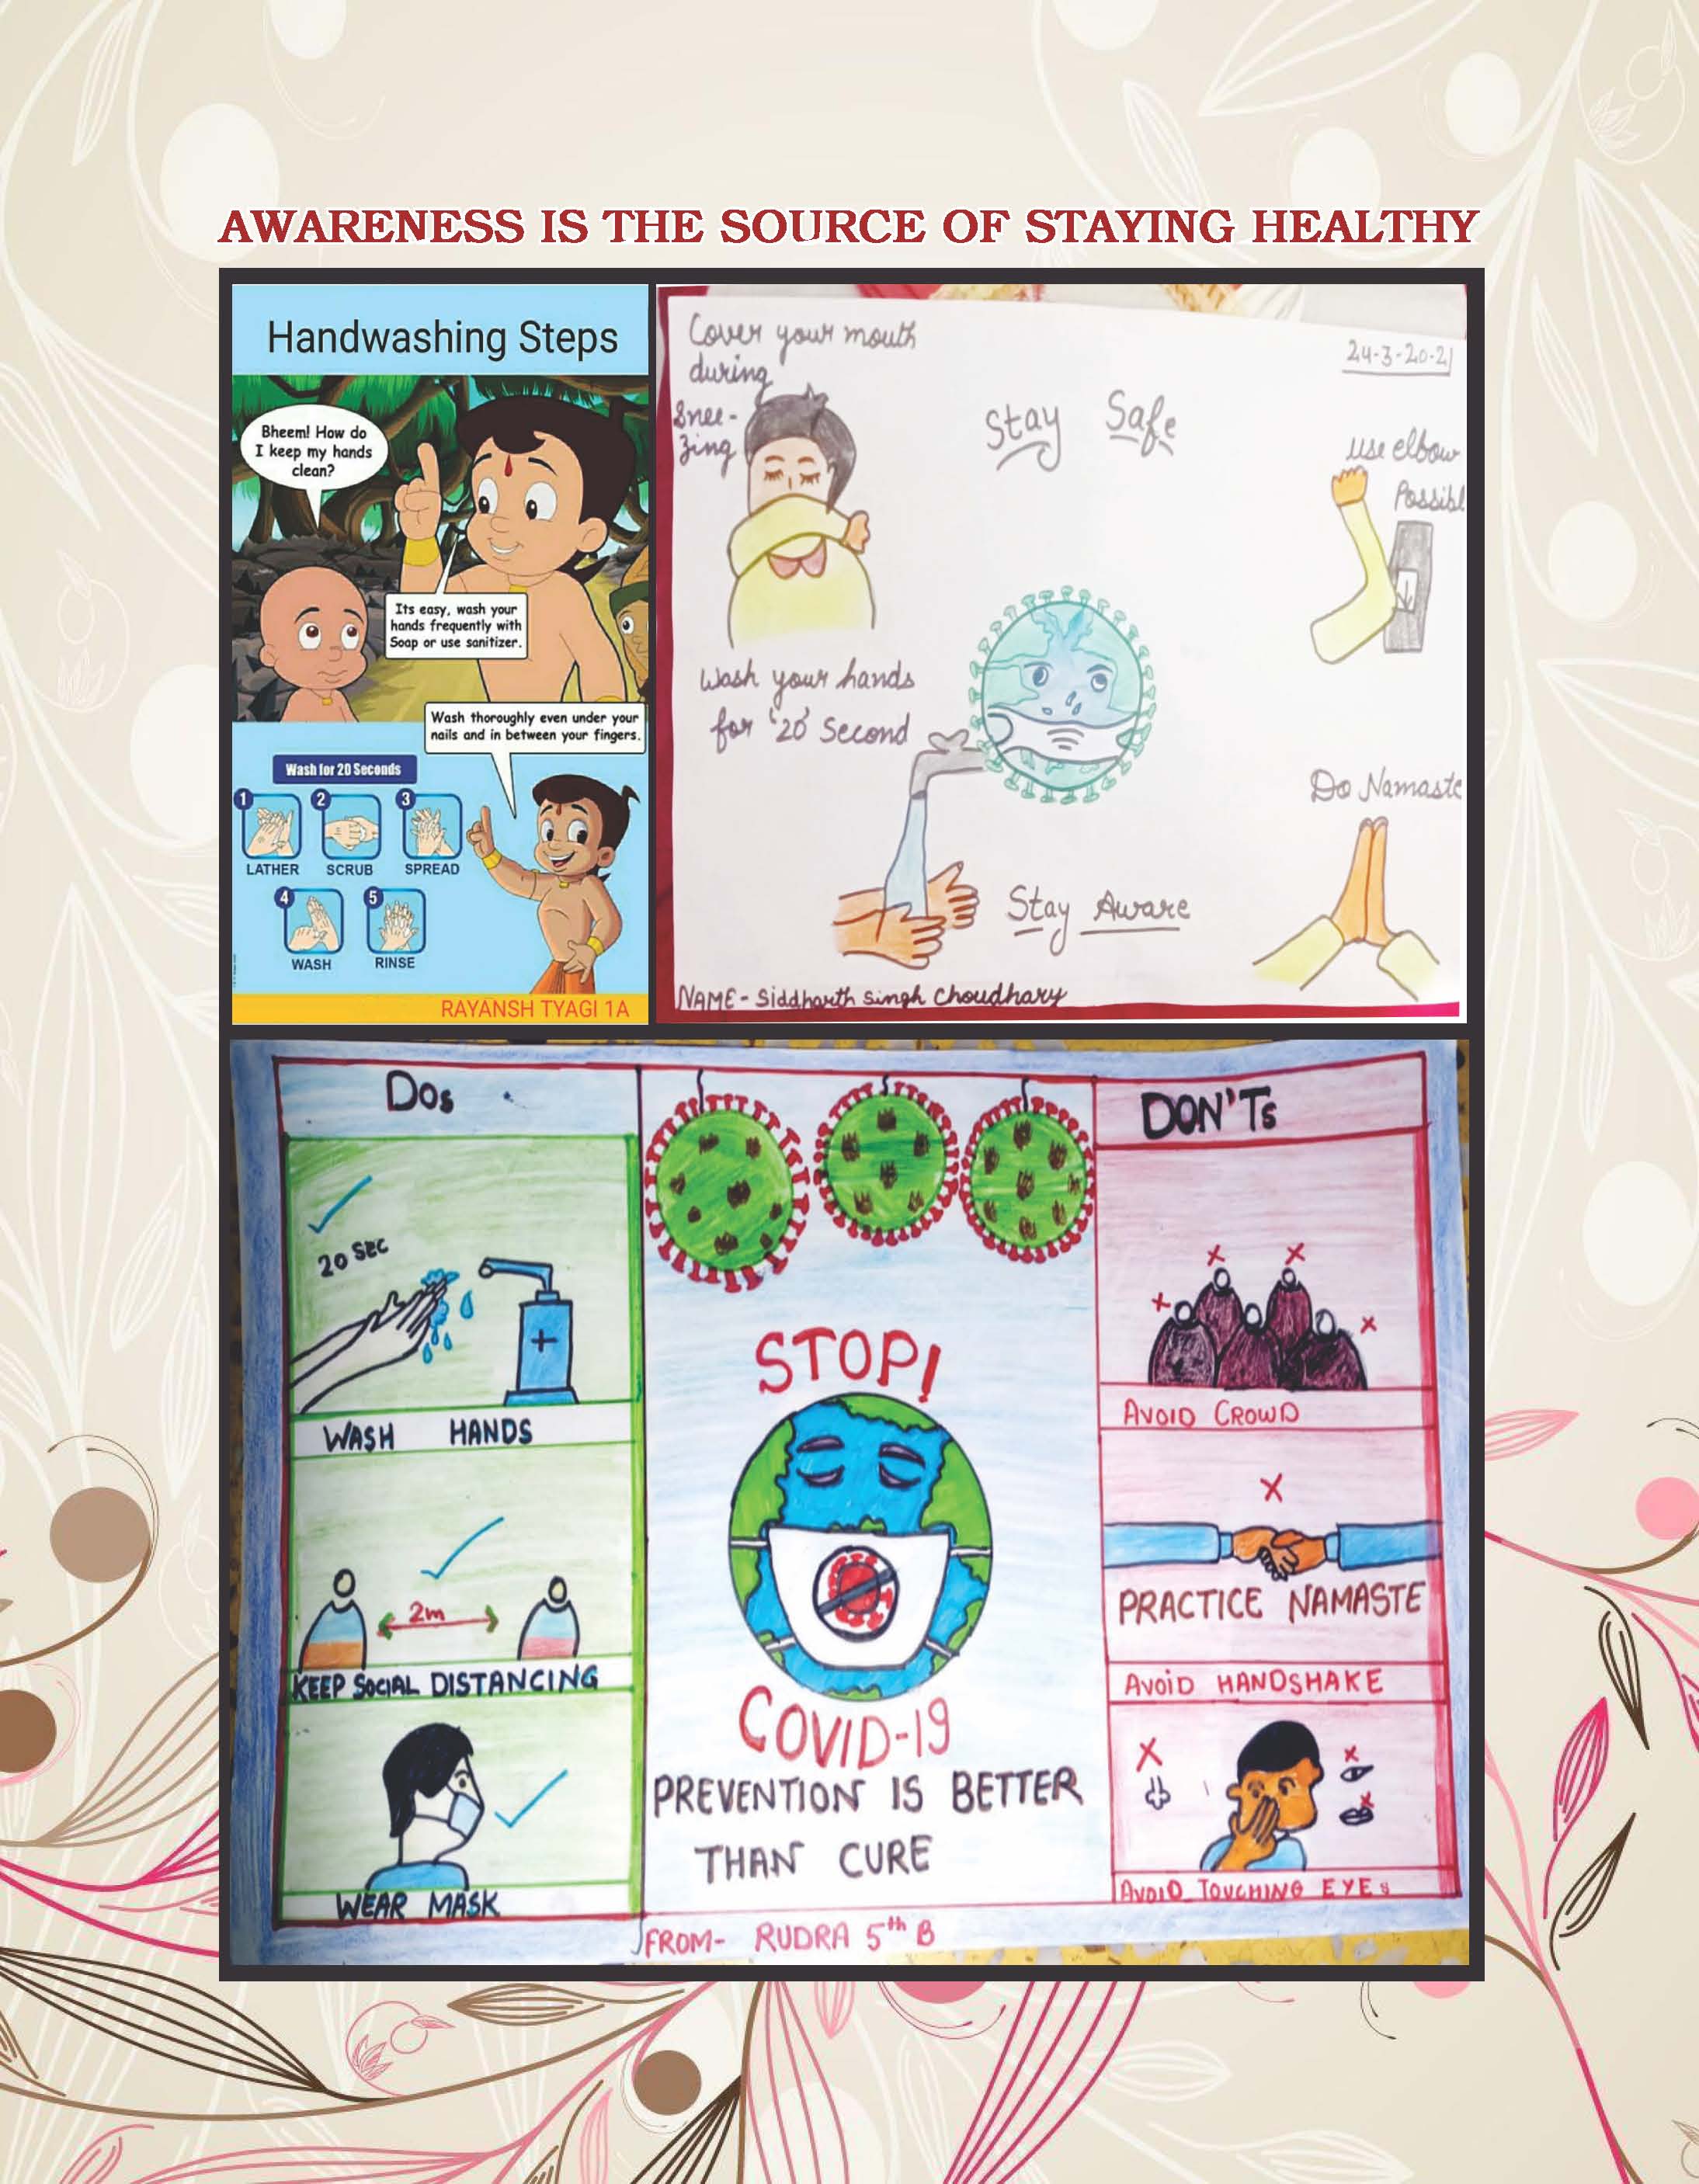 AWARENESS IS THE SOURCE OF STAYING HEALTHY
Handwashing Steps
Bheem! How do
I keep my hands
clean?
Its easy, wash your
hands frequently with
Soap or use sanitizer.
Wash thoroughly even under your
nails and in between your fingers.
Wash for 20 Seconds
1 2 3
LATHER SCRUB SPREAD
4 5
WASH RINSE
RAYANSH TYAGI 1A
Cover your mouth
during
Snee-
zing
24-3-20-21
Stay Safe
use elbow
Possibl
Wash your hands
for '20' Second
Do Namaste
Stay Aware
NAME - Siddharth Singh Choudhary
Dos
20 SEC
WASH HANDS
2m
KEEP SOCIAL DISTANCING
WEAR MASK
STOP!
COVID-19
PREVENTION IS BETTER
THAN CURE
FROM- RUDRA 5th B
DON'Ts
AVOID CROWD
PRACTICE NAMASTE
AVOID HANDSHAKE
AVOID TOUCHING EYEs